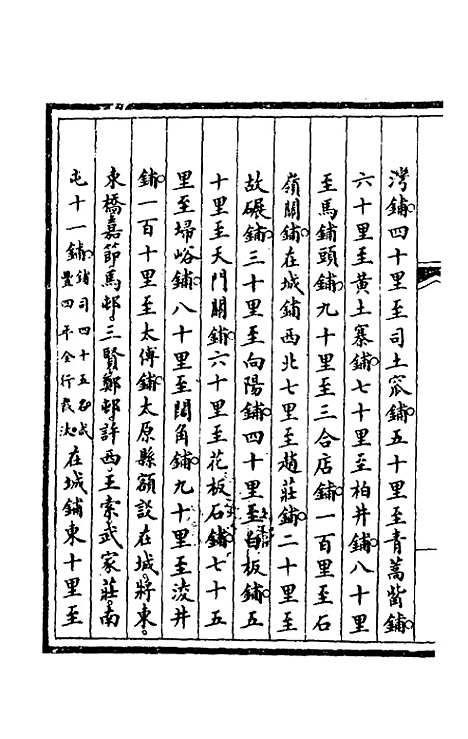 灣鋪四十里至司土窊鋪五十里至青蒿嘴鋪
六十里至黃土寨鋪七十里至柏井鋪八十里
至馬鋪頭鋪九十里至三合店鋪一百里至石
嶺關鋪在城鋪西北七里至趙莊鋪二十里至
故碾鋪三十里至向陽鋪四十里至板鋪五
十里至天門關鋪六十里至花板石鋪七十五
里至埽峪鋪八十里至閻角鋪九十里至淩井
鋪一百十里至太傅鋪太原縣額設在城將東
東橋嘉節馬邨三賢鄭邨許西王索武家莊南
屯十一鋪鋪司四十五名咸豐四年全行裁汰在城鋪東十里至